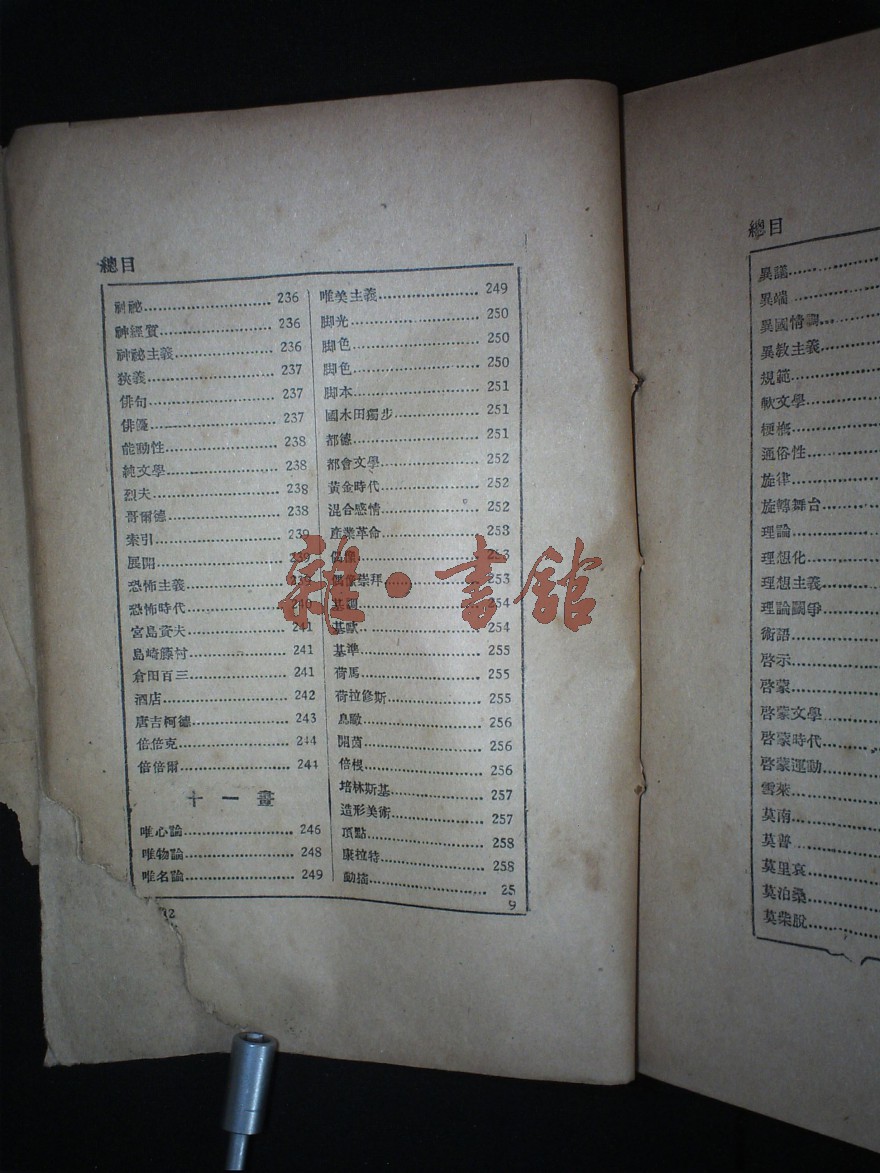 總目
神祕 236
神經質 236
神祕主義 236
狹義 237
俳句 237
俳優 237
能動性 238
純文學 238
烈夫 238
哥爾德 238
索引 239
展開 239
恐怖主義 239
恐怖時代 240
宮島資夫 241
島崎藤村 241
倉田百三 241
酒店 242
唐吉柯德 243
倍倍克 244
倍倍爾 244
十一畫
唯心論 246
唯物論 248
唯名論 249
12
唯美主義 249
脚光 250
脚色 250
脚色 250
脚本 251
國木田獨步 251
都德 251
都會文學 252
黃金時代 252
混合感情 252
產業革命 253
偶像 253
偶像崇拜 253
基調 254
基歐 254
基準 255
荷馬 255
荷拉修斯 255
鳥瞰 256
開茵 256
倍根 256
培林斯基 257
造形美術 257
頂點 258
康拉特 258
動描 25
9
雜·書館
總目
異議
異端
異國情調
異教主義
規範
軟文學
梗概
通俗性
旋律
旋轉舞台
理論
理想化
理想主義
理論鬭爭
術語
啓示
啓蒙
啓蒙文學
啓蒙時代
啓蒙運動
雪萊
莫南
莫普
莫里哀
莫泊桑
莫柴脫